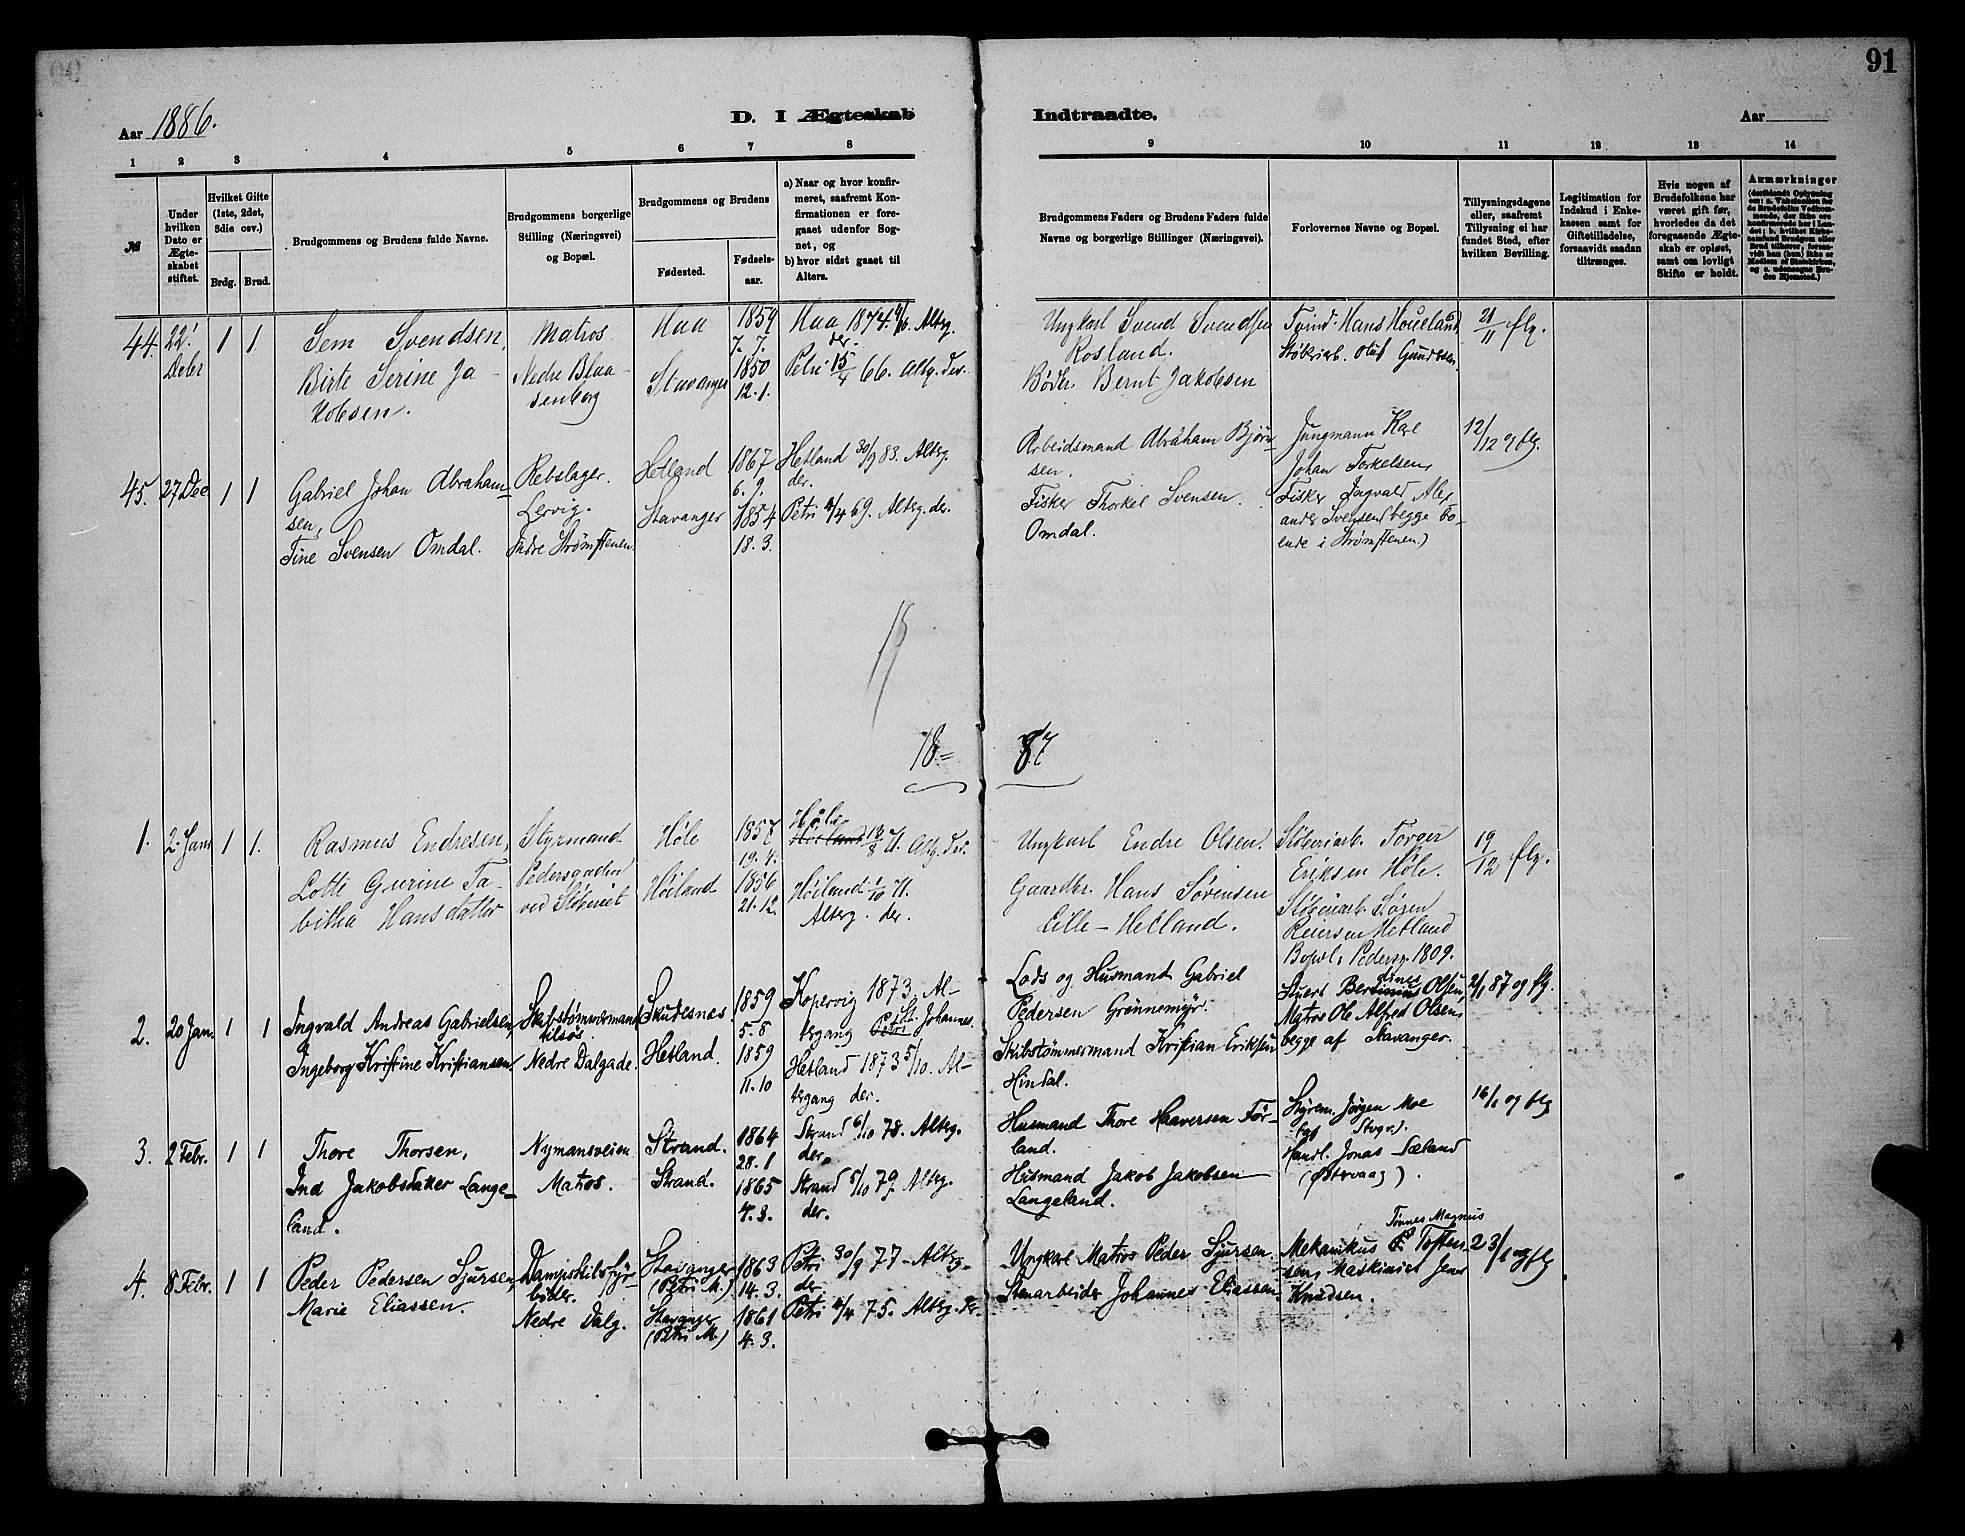 91
Aar 1886.
D. I Ægteskab Indtraadte.
Aar
1 2 3 4 5 6 7 8 9 10 11 12 13 14
№
Under hvilken Dato er Ægteskabet stiftet.
Hvilket Gifte (1ste, 2det, 3die osv.)
Brdg. Brud.
Brudgommens og Brudens fulde Navne.
Brudgommens borgerlige Stilling (Næringsvei) og Bopæl.
Brudgommens og Brudens
Fødested.
Fødselsaar.
a) Naar og hvor konfirmeret, saafremt Konfirmationen er foregaaet udenfor Sognet, og
b) hvor sidst gaaet til Alters.
Brudgommens Faders og Brudens Faders fulde Navne og borgerlige Stillinger (Næringsvei).
Forlovernes Navne og Bopæl.
Tillysningsdagene eller, saafremt Tillysning ei har fundet Sted, efter hvilken Bevilling.
Legitimation for Indskud i Enkekassen samt for Giftetilladelse, forsaavidt saadan tiltrænges.
Hvis nogen af Brudefolkene har været gift før, hvorledes da det foregaaende Ægteskab er opløst, samt om lovligt Skifte er holdt.
Anmærkninger
44. 22' Debr 1 1
Sem Svendsen,
Birte Serine Jakobsen.
Matros
Nedre Blaasenborg
Haa
Stavanger
1859
7. 7.
1850
12. 1.
Haa 1874. Alterg. der.
Petri 15/4 66. Altg. der.
Ungkarl Svend Svendsen
Rosland.
Bødk. Bernt Jakobsen
Hans Houeland
Støberiarb. Oluf Gundersen
21/11 flg.
45. 27 Dec 1 1
Gabriel Johan Abrahamsen,
Tine Svensen Omdal.
Rebslager.
Lervig.
Indre Strømstenen.
Hetland
Stavanger
1867
6. 9.
1854
18. 3.
Hetland 30/9 83. Alterg. der.
Petri 11/4 69. Alterg. der.
Arbeidsmand Abraham Bjørnsen.
Fisker Thorkel Svensen
Omdal.
Jungmann Karl
Johan Torkelsen,
Fisker Ingvald Alexander Svensen (begge boende i Strømstenen.)
12/12 og flg.
18 = 87
1. 2. Jan 1 1.
Rasmus Endresen,
Lotte Gurine Tabitha Hansdatter
Styrmand
Pedersgaden
ved Støberiet
Høle
Høiland
1857
19. 4.
1856
21. 12.
Høle
18/8 71. Altg. der.
Høiland 1/10 71.
Alterg. der.
Ungkarl Endre Olsen.
Gaardbr. Hans Sørensen
Lille-Hetland.
Støberiarb. Torger
Eriksen Høle.
Støberiarb. Søren
Reiersen Hetland
Bopæl: Pedersg. 1809.
19/12 flg.
2. 20 Jan. 1 1
Ingvald Andreas Gabrielsen,
Ingeborg Kristine Kristiansen.
Skibstømmermand
tilsøs.
Nedre Dalgade.
Skudesnes
Hetland.
1859
5. 8
1859
11. 10
Kopervig 1873. Altergang Petri St. Johannes.
Hetland 1873 5/10. Altergang der.
Lods og Husmand Gabriel
Pedersen Grønnemyr.
Skibstømmermand Kristian Eriksen
Hindal.
Stuert Olsen,
Matros Ole Alfred Olsen,
begge af Stavanger.
2/1 87 og flg.
3. 2 Febr. 1 1
Thore Thorsen,
Ina Jakobsdater Langeland.
Nymansveien
Matros.
Strand.
Strand.
1864
28. 1
1865
4. 3.
Strand 6/10 78. Alterg. der.
Strand 5/10 79. Alterg. der.
Husmand Thore Haaversen Førland.
Husmand Jakob Jakobsen
Langeland.
Styrm. Jørgen Moe
Handl. Jonas Sæland
(Østervaag).
16/1 og flg
4. 8 Febr. 1 1
Peder Pedersen Sjursen,
Marie Eliassen.
Dampskibsfyrbøder.
Nedre Dalg.
Stavanger
(Petri M.)
Stavanger
(Petri M.)
1863
14. 3.
1861
4. 3.
Petri 30/9 77 - Alterg. der.
Petri 11/4 75. Alterg. der.
Ungkarl Matros Peder Sjursen.
Stenarbeider Johannes Eliassen.
Tønnes Magnus
Mekanikus Toftensen, Maskinist Jens
Knudsen.
23/1 og flg